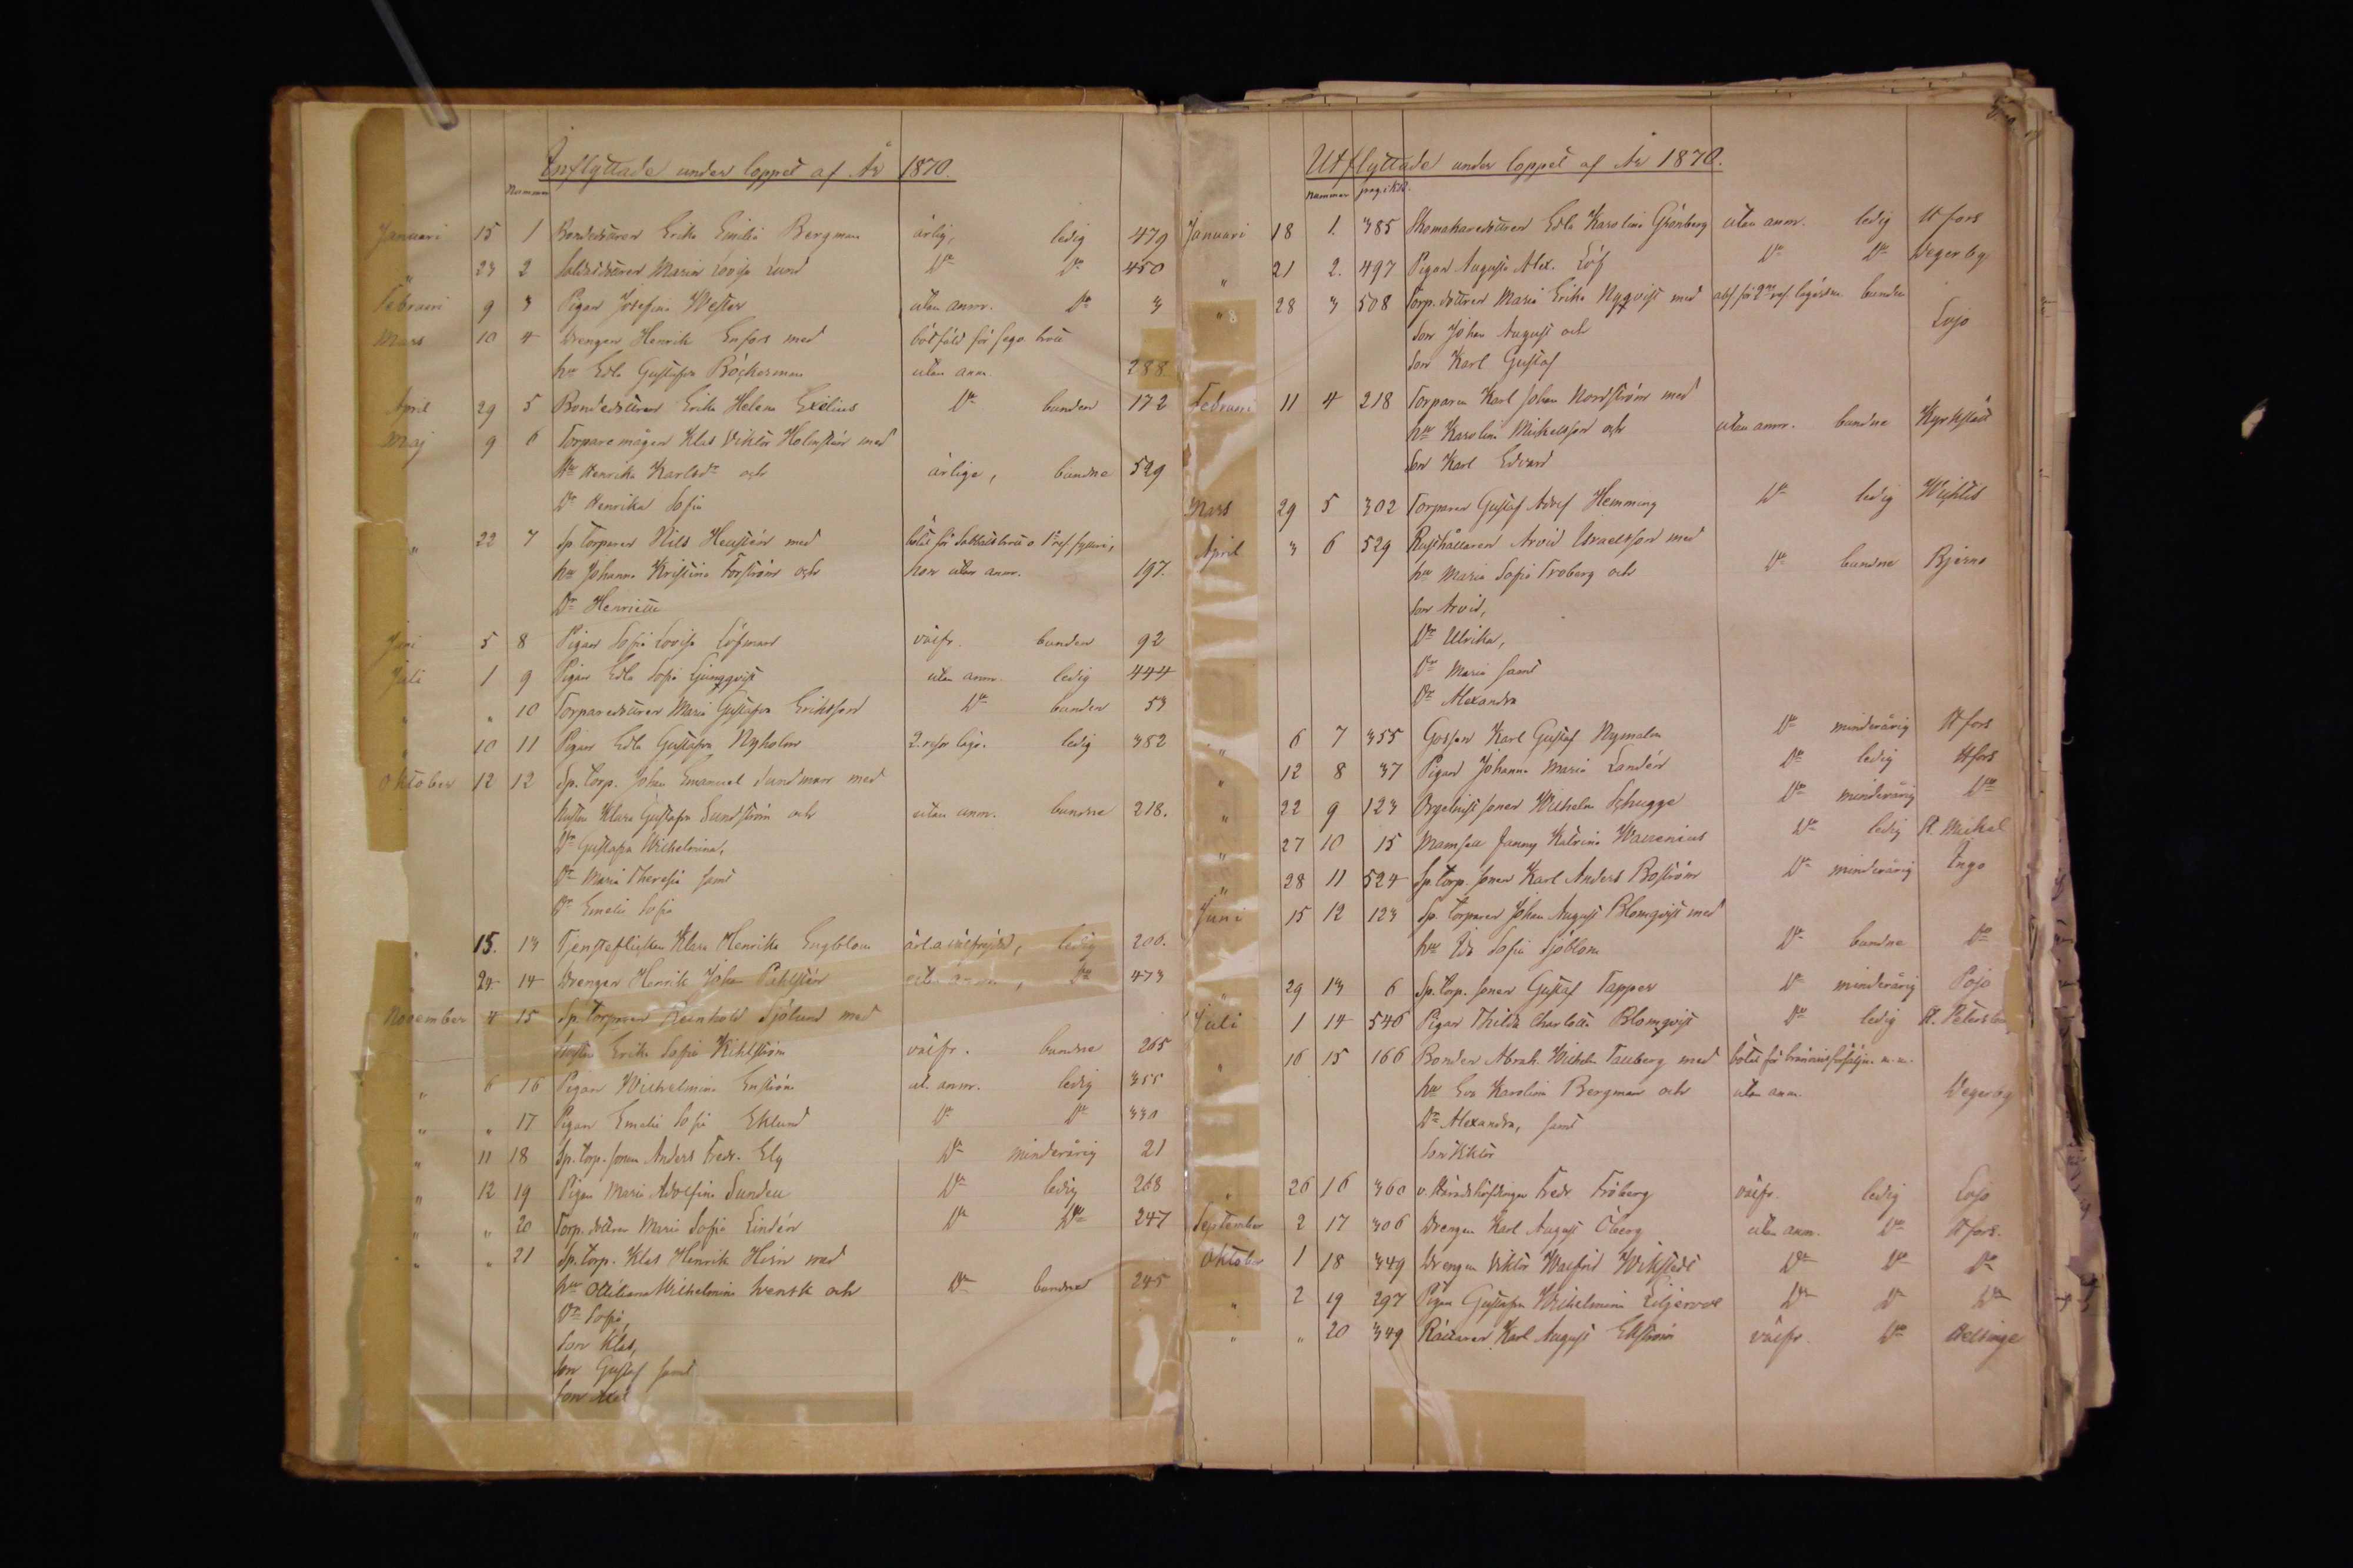 Inflyttade under loppet af År 1870.
Nummer
Januari 15 1 Bondedottren Erika Emilia Bergman ärlig, ledig 479
" 23 2 Soldatdottren Maria Lovisa Lund Do Do 450
Februari 9 3 Pigan Josefina Wester utan anm. Do 3
Mars 10 4 Drengen Henrik Enfors med botfäld för
hu Edla Gustafva Böckerman utan anm. 288.
April 29 5 Bondedottren Erika Helena Exelius Do bunden 172
Maj 9 6 Torparemågen Klas Viktor Holmstén med
hu Henrika Karlsdr och ärlige, bundne 529
Dr Henrika Sofia
" 22 7 Sp. torparen Nils Heustén med
hu Johanna Kristina Forström och hon utan anm. 197.
Dr Henriette
Juni 5 8 Pigan Sofia Lovisa Löfman välfr. bunden 92
Juli 1 9 Pigan Edla Sofia Ljungqvist utan anm. ledig 444
" " 10 Torparedottren Maria Gustafva Eriksson Do bunden 53
" 10 11 Pigan Edla Gustafva Nyholm 2. resor lägr. ledig 382
Oktober 12 12 Sp. torp. Johan Emanuel Sundman med
hustru Klara Gustafva Sundström och utan anm. bundne 218.
Dr Gustafva Wilhelmina,
Dr Maria Theresia samt
Dr Emelie Sofia
" 15. 13 Tjensteflickan Klara Henrika Engblom ärl. o välfrejdad, ledig 206.
24 14 Drengen Henrik Johan Pihlstén utan anm , Do 473
November 4 15 Sp. torparen Reinhold Sjölund med
hustru Erika Sofia Kihlström välfr. bundne 265
" 6 16 Pigan Wilhelmina Enström ut. anm. ledig 355
" " 17 Pigan Emelie Sofia Eklund Do Do 330
" 11 18 Sp. torp. sonen Anders Fredr. Elg Do minderårig 21
" 12 19 Pigan Maria Adolfina Sundell Do ledig 268
" " 20 Torp. dottren Maria Sofia Lindén Do Do 247
" " 21 Sp. torp. Klas Henrik Hirn med
hu Ottiliana Wilhelmina Svensk och Do bundne 245
Dr Sofia,
Son Klas,
Son Gustaf samt
Son Axel
Utflyttade under loppet af År 1870.
Nummer pag. i KB.
Januari 18 1. 385 Skomakaredottren Edla Karolina Grönberg utan anm. ledig Hfors
" 21 2. 497 Pigan Augusta Alex. Löf Do Do Degerby
" 28 3 508 Torp. dottren Maria Erika Nyqvist med bunden
Son Johan August och Lojo
Son Karl Gustaf
Februari 11 4 218 Torparen Karl Johan Nordström med
hu Karolina Mickelsson och utan anm. bundne Kyrkslätt
Son Karl Edvard
Mars 29 5 302 Torparen Gustaf Adolf Hemming Do ledig Wichtis
April 3 6 529 Rusthållaren Arvid Israelsson med
hu Maria Sofia Froberg och Do bundne Bjerno
Son Arvid,
Dr Ulrika,
Dr Maria samt
Dr Alexandra
" 6 7 355 Gossen Karl Gustaf Nymalm Do minderårig Hfors
" 12 8 37 Pigan Johanna Maria Landén Do ledig Hfors
" 22 9 123 Orgelnist sonen Wilhelm Schugge Do minderårig Do
" 27 10 15 Mamsell Fanny Katrina Wallenius Do ledig St. Michel
" 28 11 524 Sp. torp. sonen Karl Anders Boström Do minderårig Ingo
Juni 15 12 123 Sp. torparen Johan August Blomqvist med
hu Ida Sofia Sjöblom Do bundne Do
" 29 13 6 Sp. torp. sonen Gustaf Tapper Do minderårig Pojo
Juli 1 14 546 Pigan Thilda Charlotta Blomqvist Do ledig St. Petersb
" 16 15 166 Bonden Abrah. Wilhelm Tallberg med bötat för bränvinsförsäljn. m. m.
hu Eva Karolina Bergman och utan anm. Degerby
Dr Alexandra, samt
Son Viktor
" 26 16 360 v. Häradshöfdingen Fredr. Fröberg välfr. ledig Lojo
September 2 17 306 Drengen Karl August Öberg utan anm. Do Hfors.
Oktober 1 18 349 Drengen Viktor Walfrid Wikstedt Do Do Do
" 2 19 297 Pigan Gustafva Wilhelmina Liljeroos Do Do Do
" " 20 349 Rättaren Karl August Ekström välfr. Do Helsinge